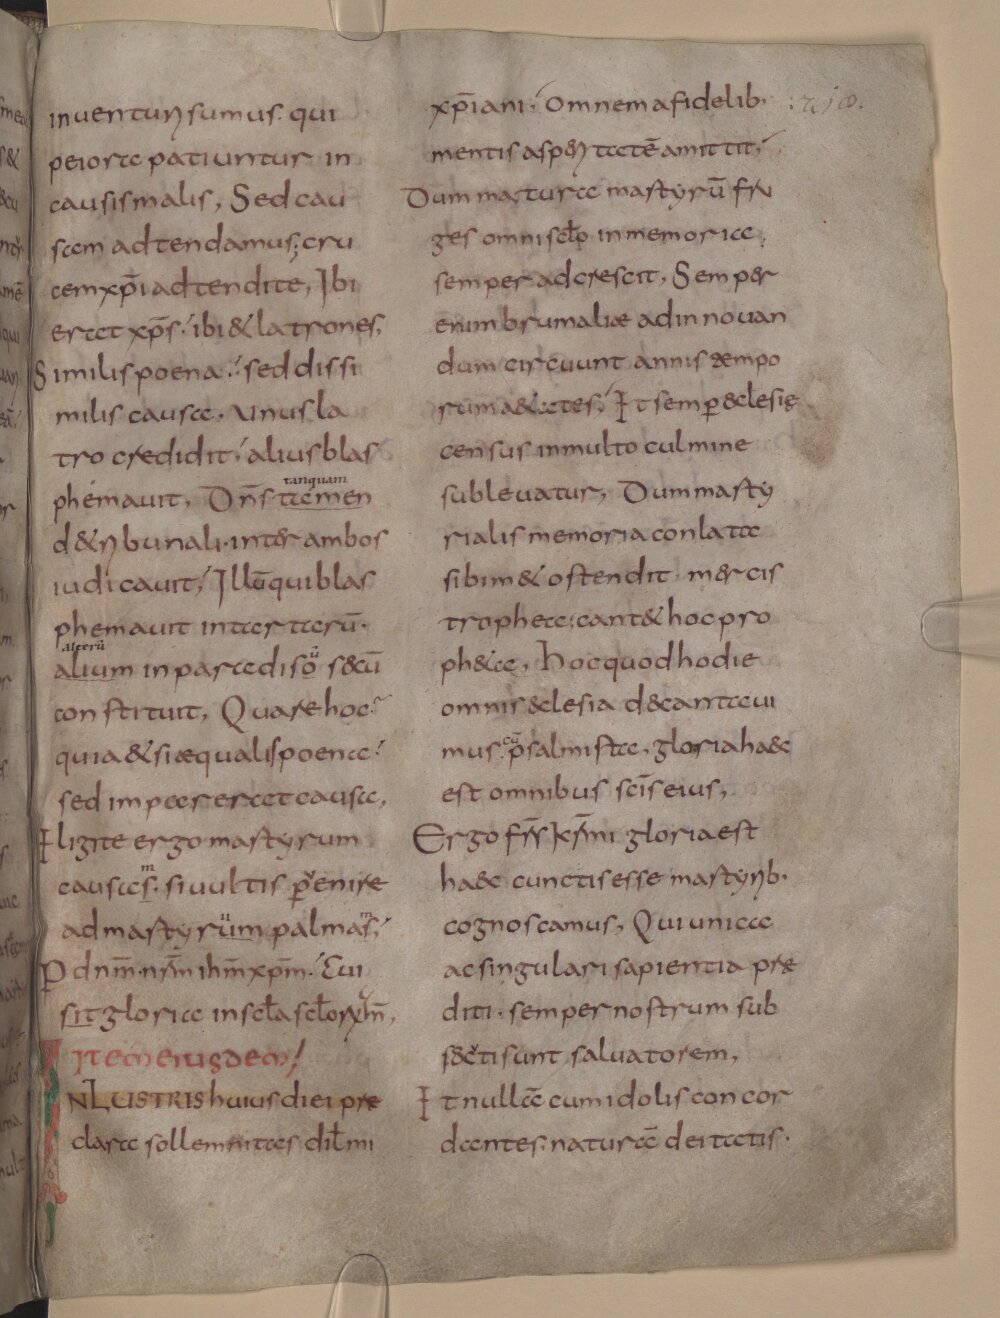 inventuri sumus. qui
peiora patiuntur in
causis malis, Sed cau
sam adtendamus; cru
cem xp̄i adtendite, Ibi
erat xp̄s. ibi & latrones,
Similis poena. sed dissi
milis causa, unus la
tro credidit. alius blas
phemauit, Dn̄s tamen
tanquam
d& ribunali. inter ambos
iudicauit, Illū qui blas
phemauit in tartarū.
alterū
alium in paradiso secū
constituit, Quare hoc.
quia & si æqualis poena.
sed impar erat causa,
Eligite ergo martyrum
causas. si uultis puenire
ad martyrum palmas,
P dn̄m. nr̄m ihm̄ xp̄m. Cui
sit gloria in scła scłorum,
Item eiusdem
INLUSTRIS huius diei pre
clara sollemnitas dił mi
xp̄iani. Omnem a fidelib.
mentis asperitatē amittit,
Dum matura martyrū fru
ges omni scło in memoria,
semper adcrescit, Semper
enim brumaliæ adinnouan
dum circuunt annis & tempo
rum a&ates, Et semp eclesie
census in multo culmine
subleuatur, Dum marty
rialis memoria conlata
sibim& ostendit mercis
trophea. cant& hoc pro
ph&a, Hoc quod hodie
omnis eclesia decantaui
mus. cū psalmista, gloria haec
est omnibus scīs eius,
Ergo fr̄s kr̄mi gloria est
haec cunctis esse martyrib.
cognoscamus, Qui unica
ac singulari sapientia pre
diti. semper nostrum sub
secti sunt saluatorem,
Et nullā cum idolis concor
dantes. naturā deitatis.